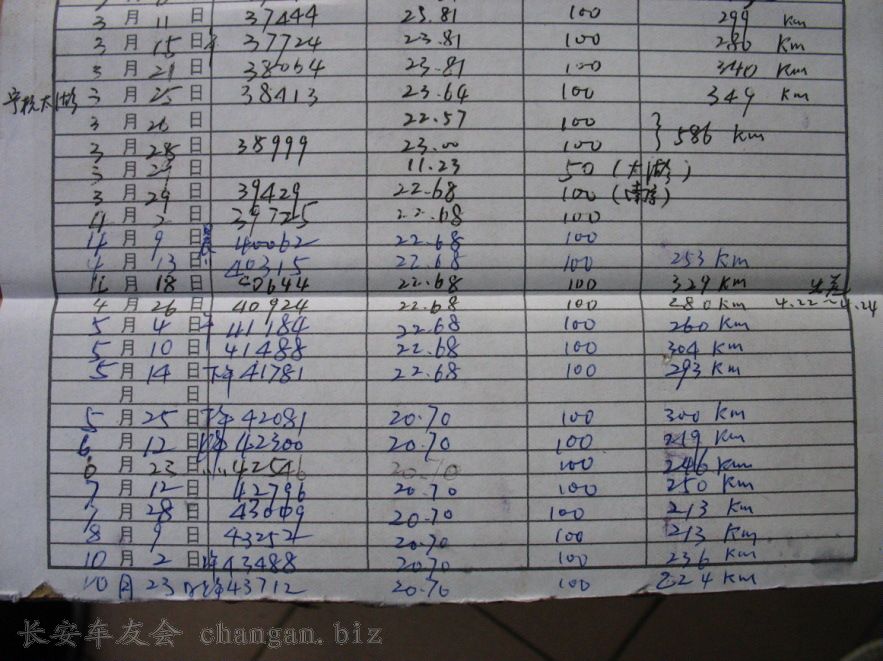 3月11日 37444 23.81 100 299 km
3月15日 37724 23.81 100 280 km
3月21日 38064 23.81 100 340 km
3月25日 38413 23.64 100 349 km
3月26日 22.57 100
586 km
3月28日 38999 23.00 100
3月29日 11.23 50
3月29日 39429 22.68 100
4月2日 39725 22.68 100
4月9日 40062 22.68 100
4月13日 40315 22.68 100 253 km
4月18日 40644 22.68 100 329 km 出差
4月26日 40924 22.68 100 280 km 4.22~4.24
5月4日 41184 22.68 100 260 km
5月10日 41488 22.68 100 304 km
5月14日 下午 41781 22.68 100 293 km
月 日
5月25日 下午 42081 20.70 100 300 km
6月12日 42300 20.70 100 219 km
6月23日 42546 20.70 100 246 km
7月12日 42796 20.70 100 250 km
7月28日 43009 20.70 100 213 km
8月9日 43252 20.70 100 213 km
10月2日 43488 20.70 100 236 km
10月23日 43712 20.70 100 224 km
长安车友会 changan.biz